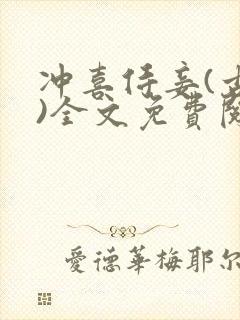 冲喜侍妾(
)全文免費
愛德華梅耶尔